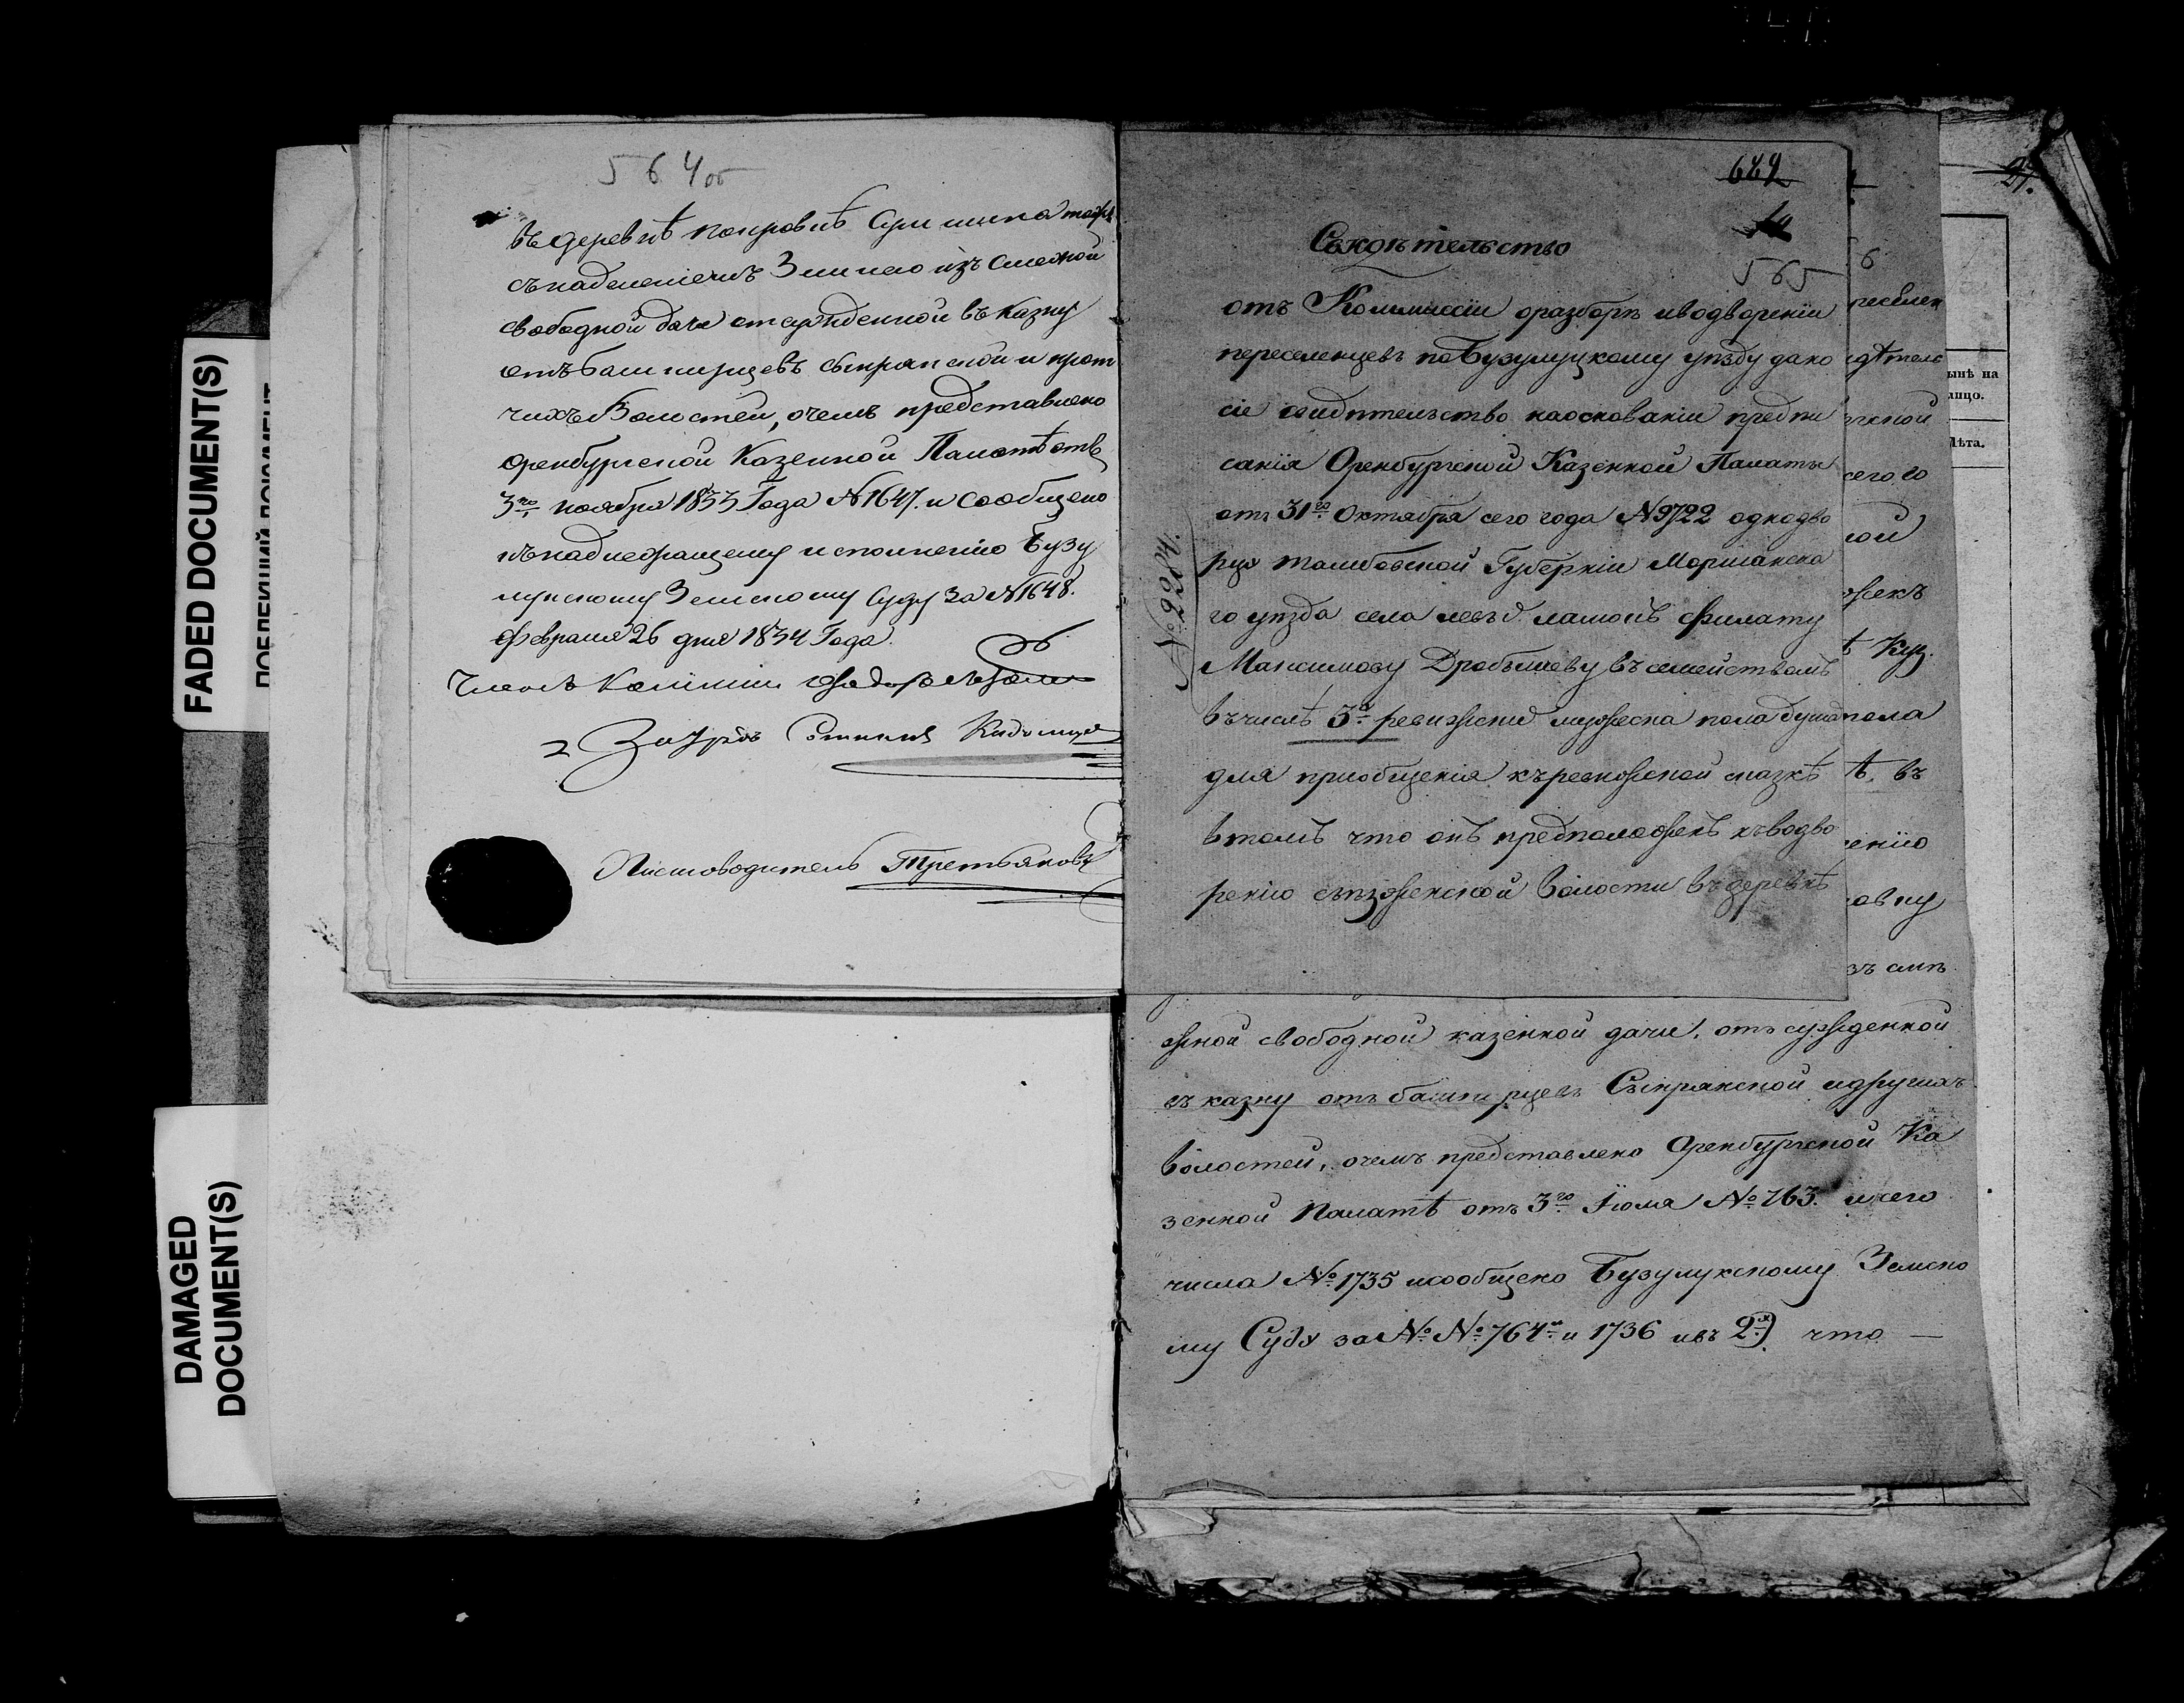 564 об
въ деревнѣ покровкѣ Аришкина тожъ
съ наделениемъ Землею изъ смежной
свободной дачи отсужденной въ Казну
отъ башкирцевъ сынрянской и прот
чихъ Волостей, очемъ представлено
Оренбургской Казенной Палатѣ отъ
3го ноября 1833 Года №1647. и сообщено
къ надлежащему исполнению Бузу
лукскому Земскому Суду за №1648.
февраля 26 дня 1834 Года.
Членъ Комисии
Письмоводитель Третьяковъ
689
565
Свидѣтельство
отъ Коммиссіи оразборѣ иводвореніи
переселенцевъ по Бузулуцкому уѣзду дано
сіе свидѣтельство наоснованіи предпи
санія Оренбургской Казенной Палаты
отъ 31го Октября сего года №9722 однодво
рцу тамбовской Губерніи Моршанска
го уѣзда села филату
Максимову Дробышеву въ семействомъ
въ числѣ 3х ревижски мужеска пола душъ
для приобщенія къ ревижской сказкѣ
втомъ что онъ предположенъ къ водво
ренію съѣзженской волости въ деревнѣ
№2284.
6
реселен
идѣтелс
ргской
сего го
кой
ожекъ
ѣ Куз.
пола
ѣ, въ
енію
овку
зъ смѣ
жной свободной казенной дачи, отъ сужденной
въ казну отъ башкирцевъ Сынрянской идругихъ
волостей, очемъ представлено Оренбургской Ка
зенной Палатѣ отъ 3го Іюля №763. исего
числа №1735 исообщено Бузулукскому Земско
му Суду за №№764м и 1736 ивъ 2х) что —
21.
ынѣ на
лицо.
Лѣта.
FADED DOCUMENT(S)
DAMAGED
DOCUMENT(S)